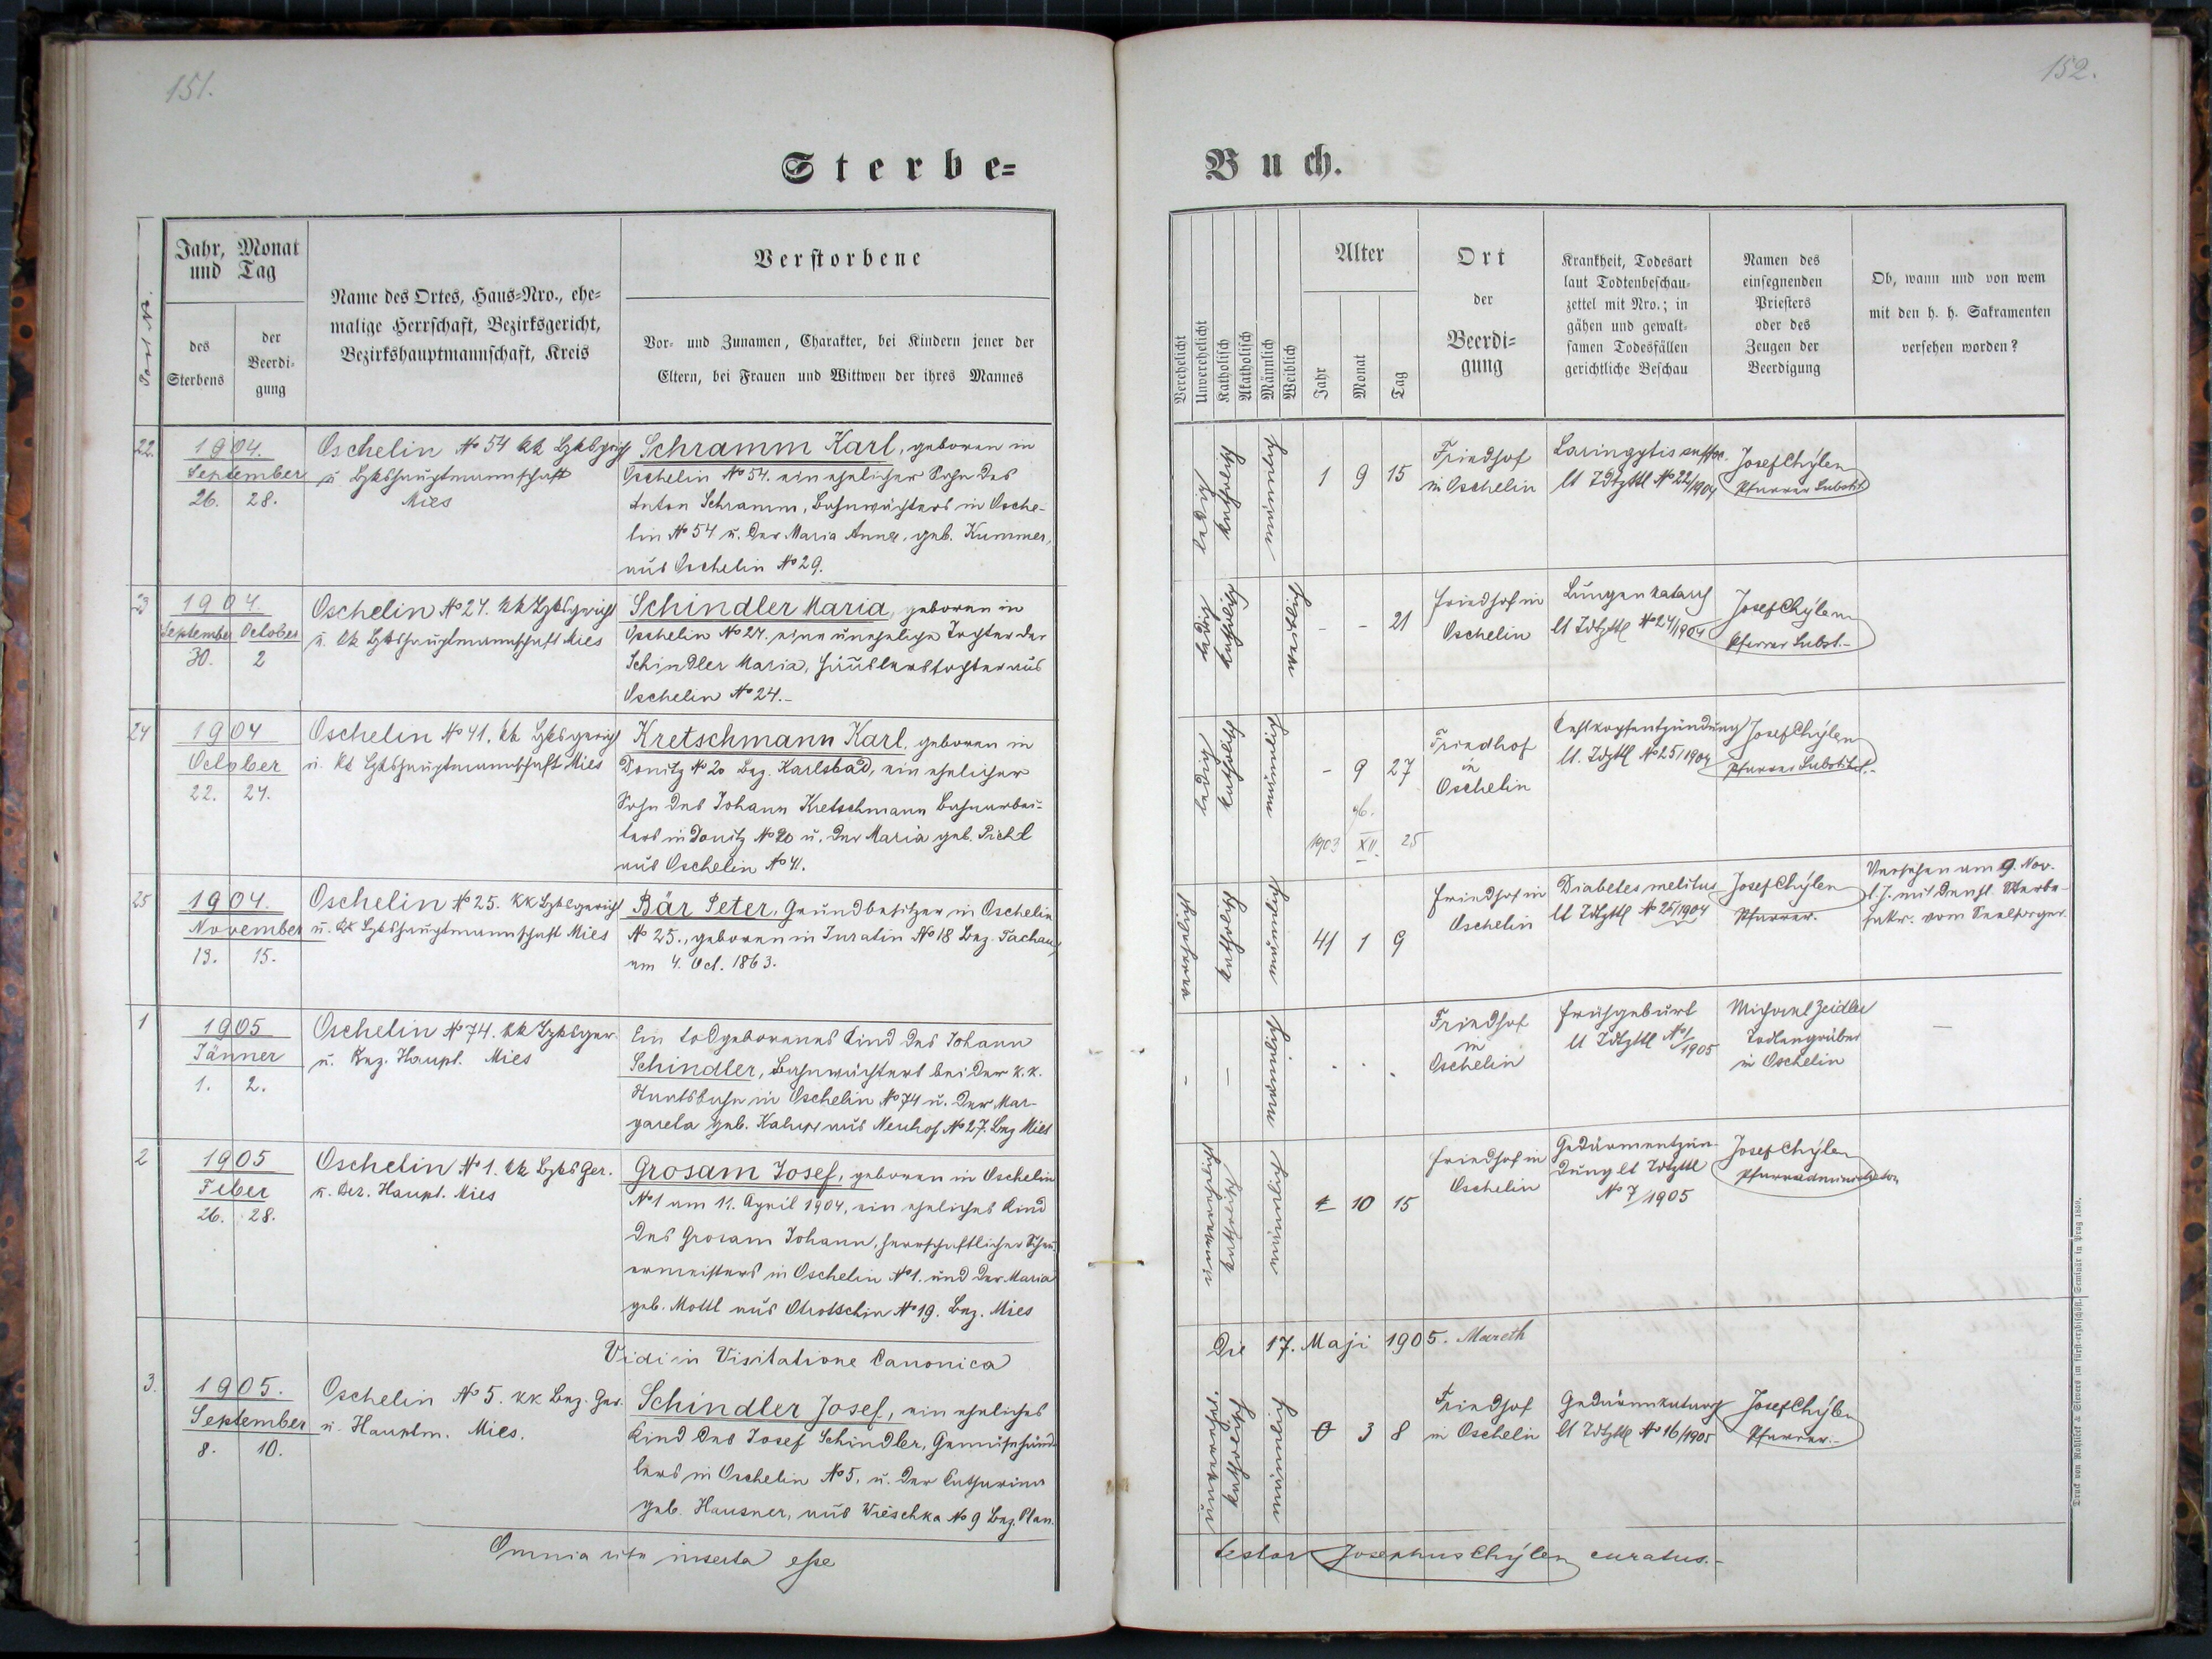 151.
152.
Sterbe=
Buch.
Post Nr.
Jahr, Monat
und Tag
des
Sterbens
der
Beerdi-
gung
Name des Ortes, Haus-Nro., ehe-
malige Herrschaft, Bezirksgericht,
Bezirkshauptmannschaft, Kreis
Verstorbene
Vor- und Zunamen, Charakter, bei Kindern jener der
Eltern, bei Frauen und Wittwen der ihres Mannes
Verehelicht
Unverehelicht
Katholisch
Akatholisch
Männlich
Weiblich
Alter
Jahr
Monat
Tag
Ort
der
Beerdi=
gung
Krankheit, Todesart
laut Todtenbeschau-
zettel mit Nro.; in
gähen und gewalt-
samen Todesfällen
gerichtliche Beschau
Namen des
einsegnenden
Priesters
oder des
Zeugen der
Beerdigung
Ob, wann und von wem
mit den h. h. Sakramenten
versehen worden?
22.
1904.
September
26. 28.
Oschelin No 54 kk Bzksgrich
u Bzkshauptmannschaft
Mies
Schramm Karl, geboren in
Oschelin No 54. ein ehelicher Sohn des
Anton Schramm, Bahnwächters in Osche-
lin No 54 u. der Maria Anna, geb. Kummer,
aus Oschelin No 29.
ledig
katholisch
männlich
1 9 15
Friedhof
in Oschelin
Laringytis suffoc.
lt Tdtzttl No 22/1904
Josef Chýlen
Pfarrer Substit.
23
1904.
September October
30. 2
Oschelin No 24. kk Bzksgericht
u. kk Bzkshauptmannschaft Mies
Schindler Maria, geboren in
Oschelin No 24. eine uneheliche Tochter der
Schindler Maria, Häuslerstochter aus
Oschelin No 24.-
ledig
katholisch
weiblich
- - 21
Friedhof in
Oschelin
Lungenkatarrh
lt Tdtzttl No 24/1904
Josef Chýlen
Pfarrer Subst.-
24
1904
October
22. 24.
Oschelin No 41. kk Bzksgericht
u. kk Bzkshauptmannschaft Mies
Kretschmann Karl, geboren in
Donitz No 20 Bez. Karlsbad, ein ehelicher
Sohn des Johann Kretschmann Bahnarbei-
ters in Donitz No 20 u. der Maria geb. Pichl
aus Oschelin No 41.
ledig
katholisch
männlich
- 9 27
gb.
1903 XII. 25
Friedhof
in
Oschelin
Kehlkopfentzündung
lt. Tdzttl No 25/1904
Josef Chýlen
Pfarrer Substitut.-
25
1904.
November
13. 15.
Oschelin No 25. kk Bzksgericht
u. kk Bzkshauptmannschaft Mies
Bär Peter, Grundbesitzer in Oschelin
No 25., geboren in Inratin No 18 Bez. Tachau,
am 4. Oct. 1863.
verehelicht
katholisch
männlich
41 1 9
Friedhof in
Oschelin
Diabetes melitus
lt Tdtzttl No 25/1904
Josef Chýlen
Pfarrer.
Versehen am 9. Nov.
l. J. mit den hl. Sterbe-
sakr. vom Seelsorger.
1
1905
Jänner
1. 2.
Oschelin No 74. kk Bzksger.
u. Bez. Haupt. Mies
Ein todgeborenes Kind des Johann
Schindler, Bahnwächters bei der k.k.
Staatsbahn in Oschelin No 74 u. der Mar-
gareta geb. aus Neuhof No 27. Bez Mies
-
-
männlich
. . .
Friedhof
in
Oschelin
Frühgeburt
lt Tdtzttl No 1/1905
Michael Zeidler
Todtengräber
in Oschelin
-
2
1905
Feber
26. 28.
Oschelin No 1. kk BzksGer.
u. Bez. Haupt. Mies
Grosam Josef, geboren in Oschelin
No 1 am 11. April 1904, ein eheliches Kind
des Grosam Johann, herrschaftlicher Scheu-
ermeisters in Oschelin No 1. und der Maria
geb. Mottl aus Otrotschin No 19. Bez. Mies
unverehelicht
katholisch
männlich
10 15
Friedhof in
Oschelin
Gedärmentzün-
dung lt Tdtzttl
No 7/1905
Josef Chýlen
Pfarradministrator
Vidi in Visitatione Canonica
Die 17. Maji 1905. Mareth
3.
1905.
September
8. 10.
Oschelin No 5. kk Bez. Ger.
u. Hauptm. Mies.
Schindler Josef, ein eheliches
Kind des Josef Schindler, Gemüsehänd-
lers in Oschelin No 5. u. der Catharina
geb. Hausner, aus Wieschka No 9 Bez. Plan.
unverehel.
katholisch
männlich
0 3 8
Friedhof
in Oschelin
Gedärmkatarrh
lt Tdtzttl No 16/1905
Josef Chýlen
Pfarrer.-
Omnia rite inserta esse
testor Josephus Chýlen curatus.-
Druck von Rohliček & Sievers im fürst-erzbischöfl. Seminär in Prag